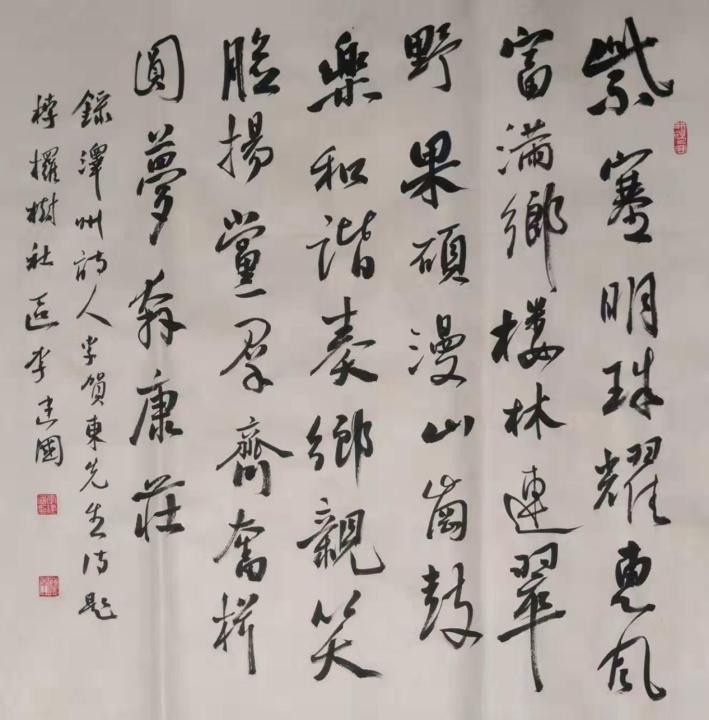 紫塞明珠耀惠風
富滿鄉樓林連翠
野果碩漫山崗鼓
樂和諧奏鄉親笑
臉揚黨羣齊奮楫
圓夢奔康莊
錄澤州詩人李賀東先生詩題
桲欏樹社區李建國